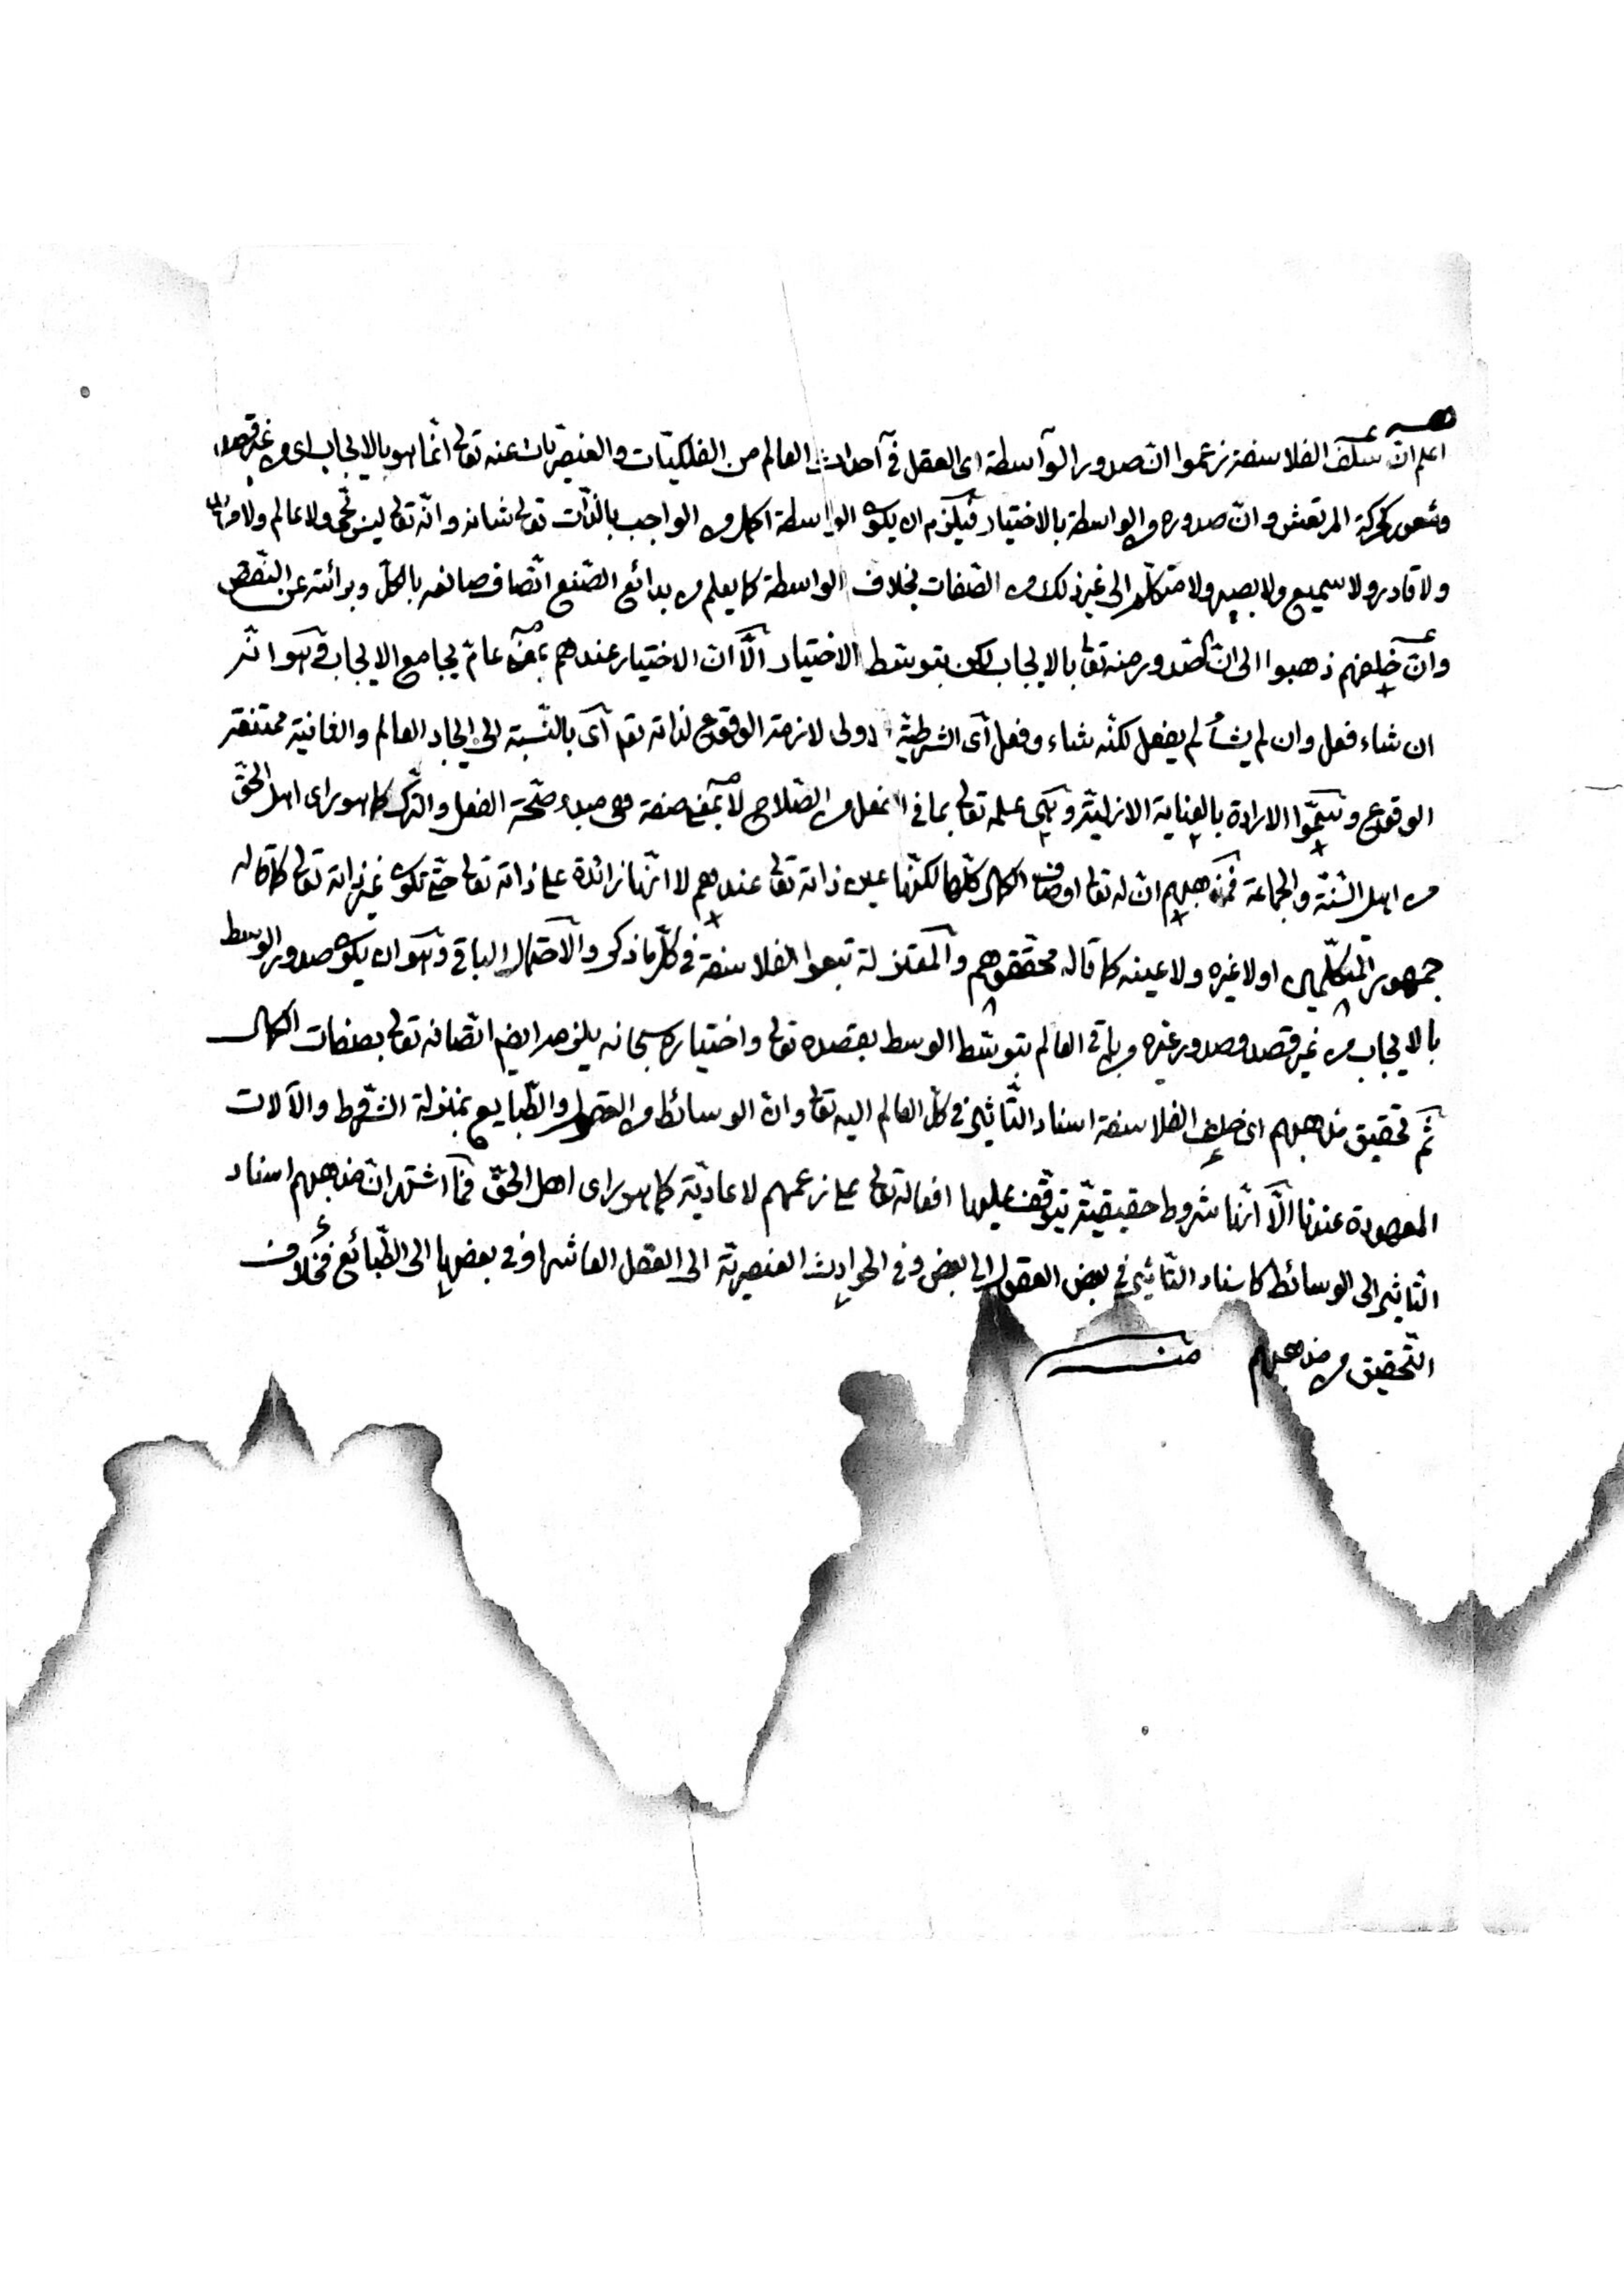 اعلم انّ سلف الفلاسفة زعموا انّ صدور الواسطة اى العقل فى آحداث العالم من الفلكيّات والعنصريات عنه تعالى انّما هو بالايجاب اى من غير قصد
وشعور كحركة المرتعش وانّ صدوره من الواسطة بالاختيار فيلزم ان يكون الواسطة اكمل من الواجب بالذّات تعالى شانه وانّه تعالى ليس بحىّ ولا عالم ولا مريد
ولا قادر ولا سميع ولا بصير ولا متكلّم الى غير ذلك من الصّفات بخلاف الواسطة كما يعلم من بدائع الصّنع اتّصاف صانعه بالكلّ وبرائته عن النّقص
وانّ خلفهم ذهبوا الى انّ الصّدور منه تعا بالايجاب لكن بتوسّط الاختيار الّا انّ الاختيار عندهم بمعنى عامّ يجامع الايجاب وهو انّه
ان شاء فعل وان لم يشأ لم يفعل لكنّه شاء وفعل اى الشرطيّة الاولى لازمة الوقوع لذاته تعم اى بالنّسبة الى ايجاد العالم والثانية ممتنعة
الوقوع وسمّوا الارادة بالعناية الازليّة وهى علمه تعالى بما فى الفعل من الصّلاح لا بمعنى صفة هى مبدء صحّة الفعل والترك كما هو راى اهل الحقّ
من اهل السّنّة والجماعة فمذهبهم انّ له تعا اوصاف الكمال كلّها لكنّها عين ذاته تعا عندهم لا انّها زائدة على ذاته تعالى حتّى تكون غير ذاته تعالى كما قاله
جمهور المتكلّمين او لا غيره ولا عينه كما قاله محقّقوهم والمعتزلة تبعوا الفلاسفة فى كلّ ما ذكر والاحتمال الباقى وهو ان يكون صدور الوسط
بالايجاب من غير قصد وصدور غيره من باقى العالم بتوسّط الوسط بقصده تعالى واختياره سبحانه يلزمه ايضم اتّصافه تعالى بصفات الكمال
ثمّ تحقيق مذهبهم اى خلف الفلاسفة اسناد التّاثير فى كلّ العالم اليه تعا وانّ الوسائط من العقول والطّبايع بمنزلة الشّروط والآلات
المعهودة عندنا الّا انّها شروط حقيقيّة يتوقّف عليها افعاله تعالى على زعمهم لا عاديّة كما هو راى اهل الحقّ فما اشتهر انّ مذهبهم اسناد
التّاثير الى الوسائط كاسناد التّاثير فى بعض العقول الى بعض وفى الحوادث العنصريّة الى العقل العاشر او فى بعضها الى الطّبائع فخلاف
التّحقيق من مذهبهم منه